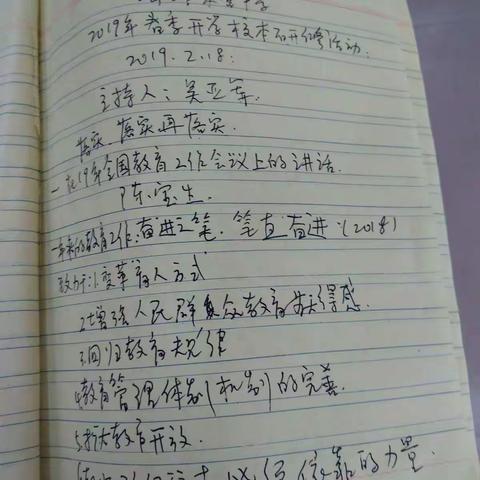 2019年春季开学校本研修活动.
2019.2.18.
主持人: 吴亚军.
落实 落实再落实.
一在19年全国教育工作会议上的讲话.
陈宝生.
一年来的教育工作:奋进之笔,笔直奋进(2018)
致力于:1.变革育人方式
2.增强人民群众教育获得感.
3.回归教育规律
4.教育管理体制(机制)的完善.
5.扩大教育开放.
依靠的力量.